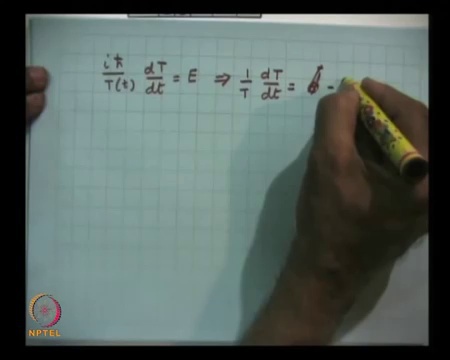 iℏ/T(t) dT/dt = E ⇒ 1/T dT/dt = -
NPTEL